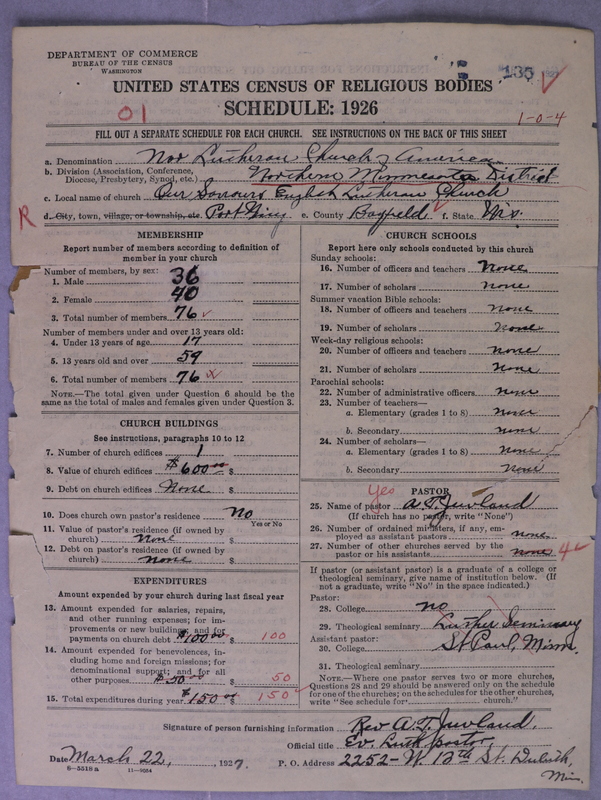 DEPARTMENT OF COMMERCE
BUREAU OF THE CENSUS
WASHINGTON
135
UNITED STATES CENSUS OF RELIGIOUS BODIES
SCHEDULE: 1926
01
1-0-4
FILL OUT A SEPARATE SCHEDULE FOR EACH CHURCH. SEE INSTRUCTIONS ON THE BACK OF THIS SHEET
a. Denomination Nor Lutheran Church of America
b. Division (Association, Conference, Diocese, Presbytery, Synod, etc.) Northern Minnesota District
c. Local name of church Our Saviours English Lutheran Church
R
d. City, town, village, or township, etc. Port Wing e. County Bayfield f. State Wis.
MEMBERSHIP
Report number of members according to definition of
member in your church
Number of members, by sex:
1. Male 36
2. Female 40
3. Total number of members 76
Number of members under and over 13 years old:
4. Under 13 years of age 17
5. 13 years old and over 59
6. Total number of members 76
NOTE.—The total given under Question 6 should be the
same as the total of males and females given under Question 3.
CHURCH BUILDINGS
See instructions, paragraphs 10 to 12
7. Number of church edifices 1
8. Value of church edifices $600.00 $
9. Debt on church edifices None $
10. Does church own pastor's residence No
Yes or No
11. Value of pastor's residence (if owned by
church) none $
12. Debt on pastor's residence (if owned by
church) none $
EXPENDITURES
Amount expended by your church during last fiscal year
13. Amount expended for salaries, repairs,
and other running expenses; for im-
provements or new buildings; and for
payments on church debt $100.00 $ 100
14. Amount expended for benevolences, in-
cluding home and foreign missions; for
denominational support; and for all
other purposes $50.00 $ 50
15. Total expenditures during year $150.00 $ 150
CHURCH SCHOOLS
Report here only schools conducted by this church
Sunday schools:
16. Number of officers and teachers None
17. Number of scholars none
Summer vacation Bible schools:
18. Number of officers and teachers none
19. Number of scholars none
Week-day religious schools:
20. Number of officers and teachers none
21. Number of scholars none
Parochial schools:
22. Number of administrative officers none
23. Number of teachers—
a. Elementary (grades 1 to 8) none
b. Secondary none
24. Number of scholars—
a. Elementary (grades 1 to 8) none
b. Secondary none
Yes PASTOR
25. Name of pastor A. T.
(If church has no pastor, write "None")
26. Number of ordained ministers, if any, em-
ployed as assistant pastors none
27. Number of other churches served by the
pastor or his assistants none 4
If pastor (or assistant pastor) is a graduate of a college or
theological seminary, give name of institution below. (If
not a graduate, write "No" in the space indicated.)
Pastor:
28. College no
29. Theological seminary Luther Seminary
Assistant pastor:
30. College St Paul, Minn.
31. Theological seminary
NOTE.—Where one pastor serves two or more churches,
Questions 28 and 29 should be answered only on the schedule
for one of the churches; on the schedules for the other churches,
write "See schedule for church."
Signature of person furnishing information Rev A. T.
Official title Ev. Luth pastor
Date March 22, 1927. P. O. Address 2252-W. 12th St. Duluth,
Minn.
6-5518a 11-9054